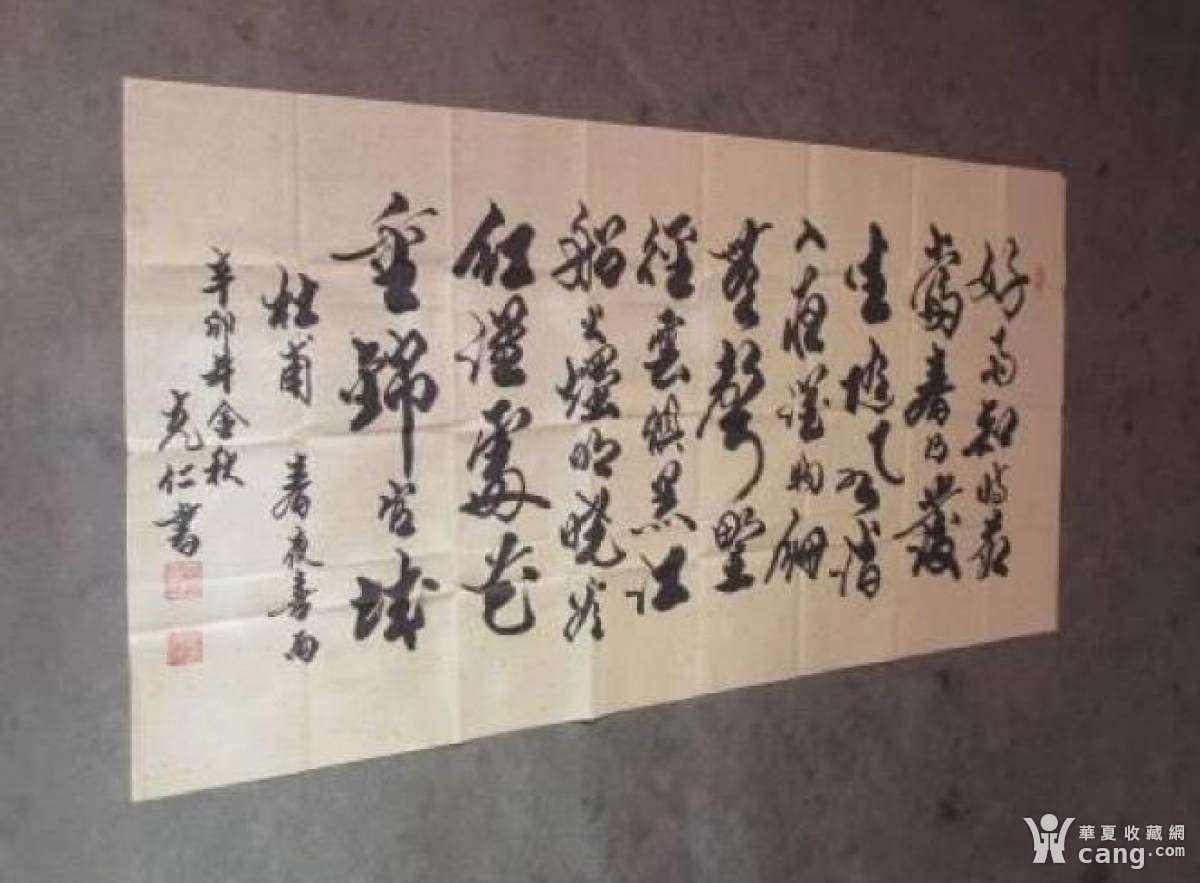 好雨知時節
當春乃發
生隨風潛
入夜潤物細
無聲野
徑雲俱黑江
船火獨明曉看
紅濕處花
重錦官城
杜甫 春夜喜雨
辛卯年金秋
克仁書
華夏收藏網
cang.com